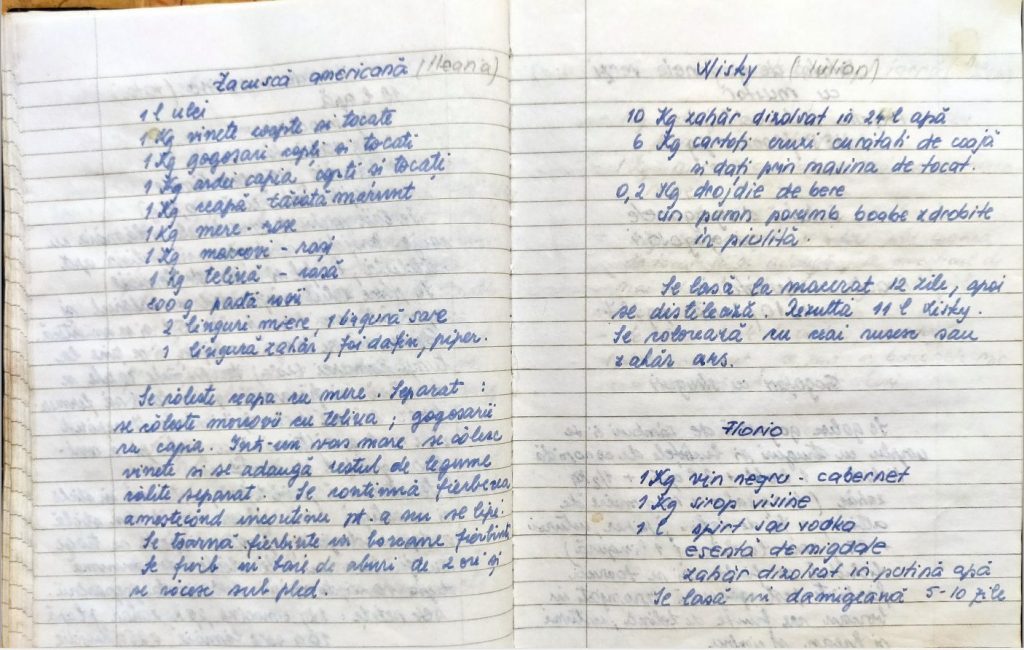 Zacuscă americană (Ileana)
1 l ulei
1 Kg vinete coapte si tocate
1 Kg gogosari copti si tocati
1 Kg ardei capia copti si tocați
1 Kg ceapă tăiată mărunt
1 Kg mere - rase
1 Kg morcovi - rași
1 Kg telină - rasă
200 g pastă roșii
2 linguri miere, 1 lingură sare
1 lingură zahăr, foi dafin, piper.
Se călește ceapa cu mere. Separat:
se călește morcovii cu telina; gogosarii
cu capia. Intr-un vas mare se călesc
vinete si se adaugă restul de legume
călite separat. Se continuă fierberea
amestecând incontinu pt. a nu se lipi.
Se toarnă fierbinte in borcane fierbinti
Se fierb in baie de aburi de 2 ori și
se răcesc sub pled.
Wisky (Iulian)
10 Kg zahăr dizolvat in 24 l apă
6 Kg cartofi cruzi curătati de coajă
si dați prin masina de tocat.
0,2 Kg drojdie de bere
un pumn porumb boabe zdrobite
in piuliță.
Se lasă la macerat 12 zile, apoi
se distilează. Rezultă 11 l Wisky.
Se colorează cu ceai rusesc sau
zahăr ars.
Florio
1 Kg vin negru - cabernet
1 Kg sirop visine
1 l spirt sau vodka
esentă de migdale
zahăr dizolvat in putină apă
Se lasă in damigeană 5-10 zile